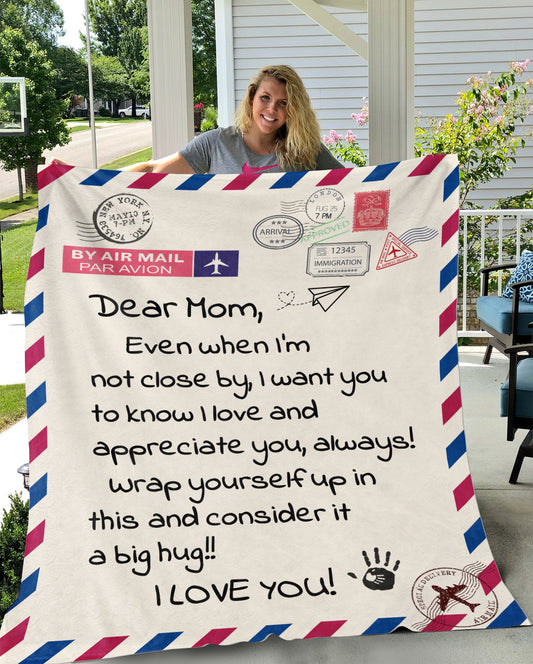 NEW YORK N.Y.
MAY 10
7-PM
764533
LONDON
AUG 25
7 PM
ARRIVAL
APPROVED
12345
IMMIGRATION
BY AIR MAIL
PAR AVION
Dear Mom,
Even when I'm
not close by, I want you
to know I love and
appreciate you, always!
wrap yourself up in
this and consider it
a big hug!!
I LOVE YOU!
SPECIAL DELIVERY
AIR MAIL